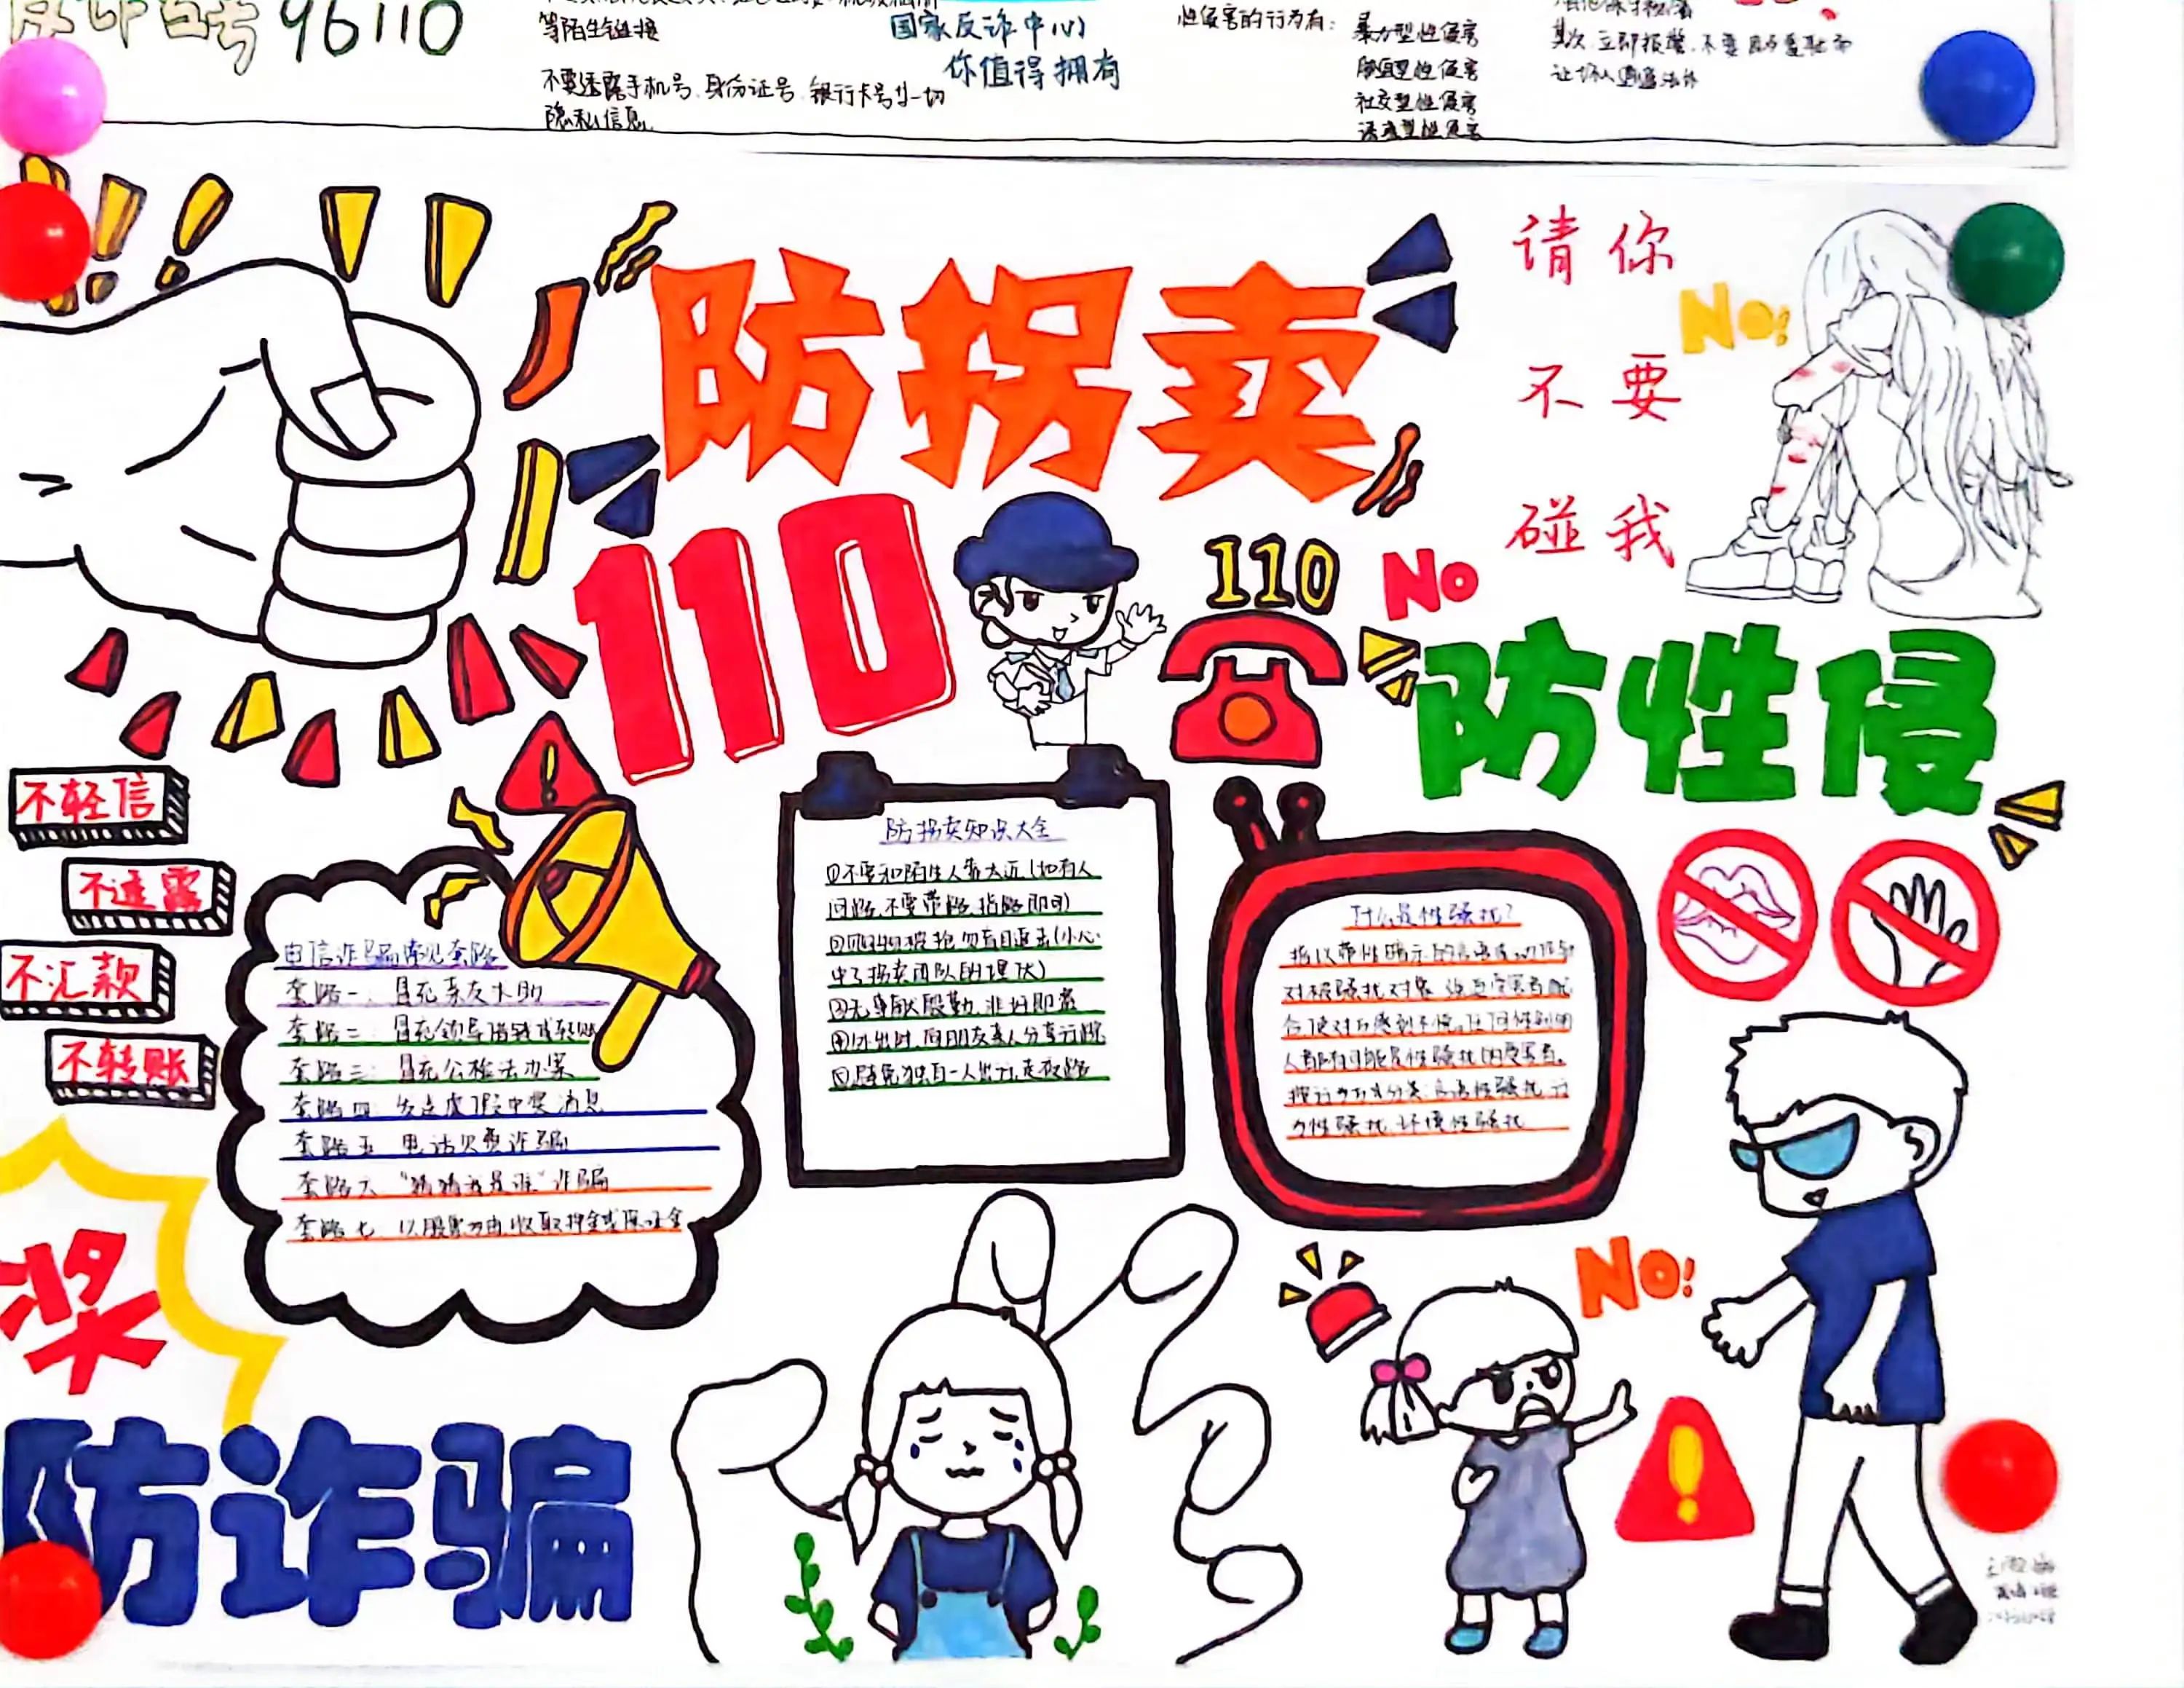 96110
等陌生链接
国家反诈中心
你值得拥有
不要透露手机号、身份证号、银行卡号等一切
隐私信息.
性侵害的行为有:
暴力型性侵害
胁迫型性侵害
社交型性侵害
诱惑型性侵害
其次,立即报警,不要因为羞耻而
让坏人逍遥法外
防拐卖
110
110
请你
不要
碰我
No!
No
防性侵
不轻信
不透露
不汇款
不转账
电信诈骗常见套路
套路一:冒充亲友求助
套路二:冒充领导借钱或转账
套路三:冒充公检法办案
套路四:发送虚假中奖消息
套路五:电话欠费诈骗
套路六:"猜猜我是谁"诈骗
套路七:以服务为由,收取押金或保证金
防拐卖知识大全
①不要和陌生人靠太近(如有人
问路,不要带路,指路即可)
②财物被抢,勿盲目追击(小心
中了拐卖团队的埋伏)
③无事献殷勤,非奸即盗
④外出时,向朋友亲人分享行程
⑤避免独自一人出行,走夜路
什么是性骚扰?
指以带性暗示的言语或动作
对被骚扰对象,强迫受害者配
合,使对方感到不悦。任何性别的
人都有可能是性骚扰的受害者。
按行为方式分类:言语性骚扰,行
为性骚扰,环境性骚扰
奖
No!
防诈骗